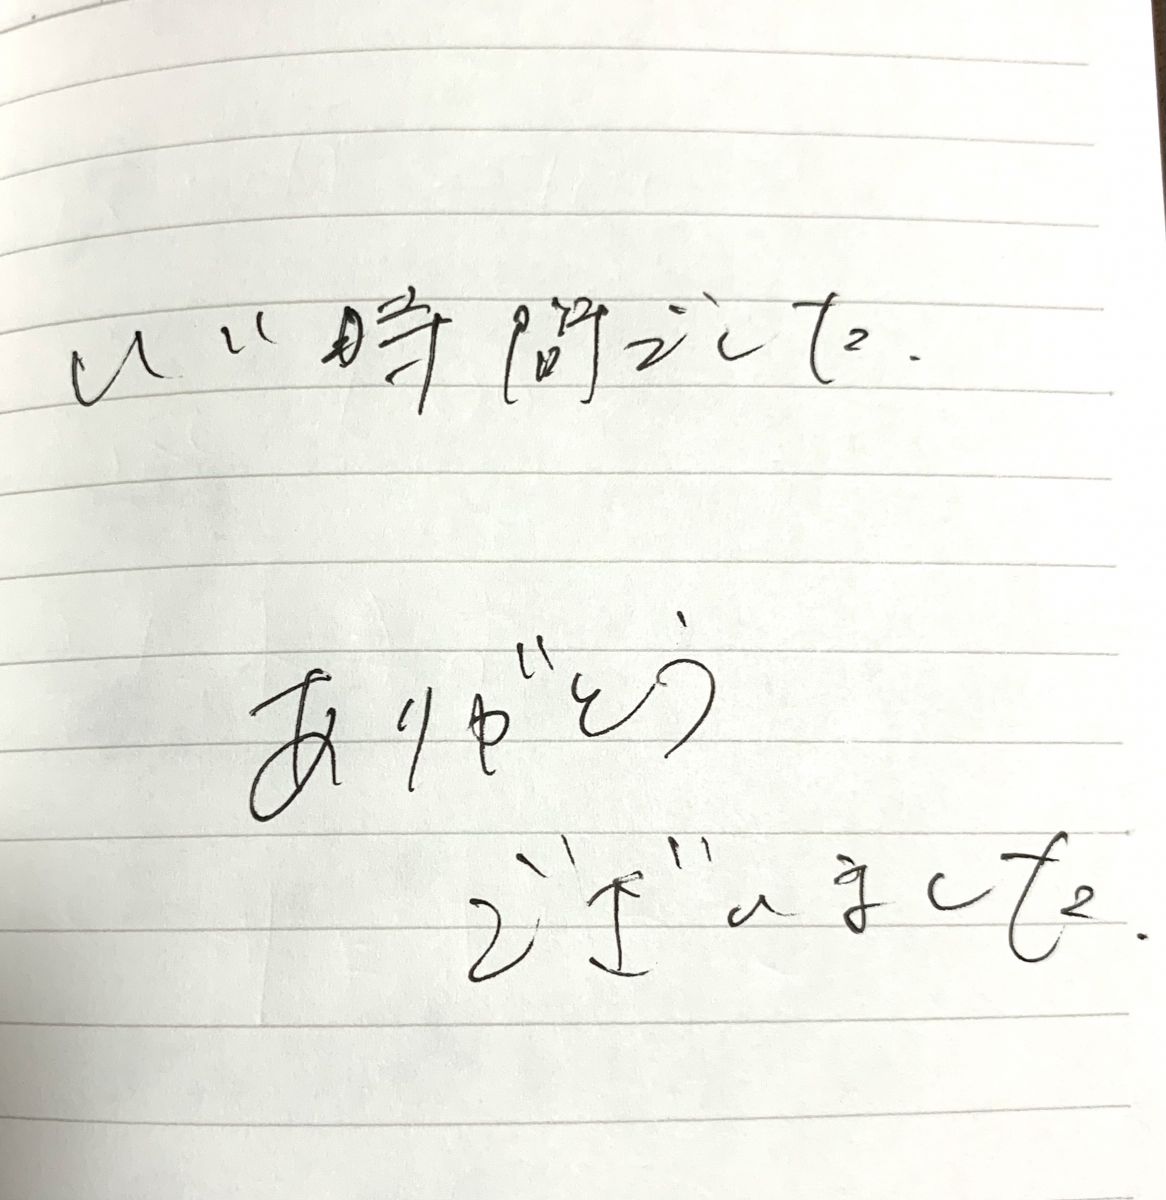 いい時間でした.
ありがとう
ございました.